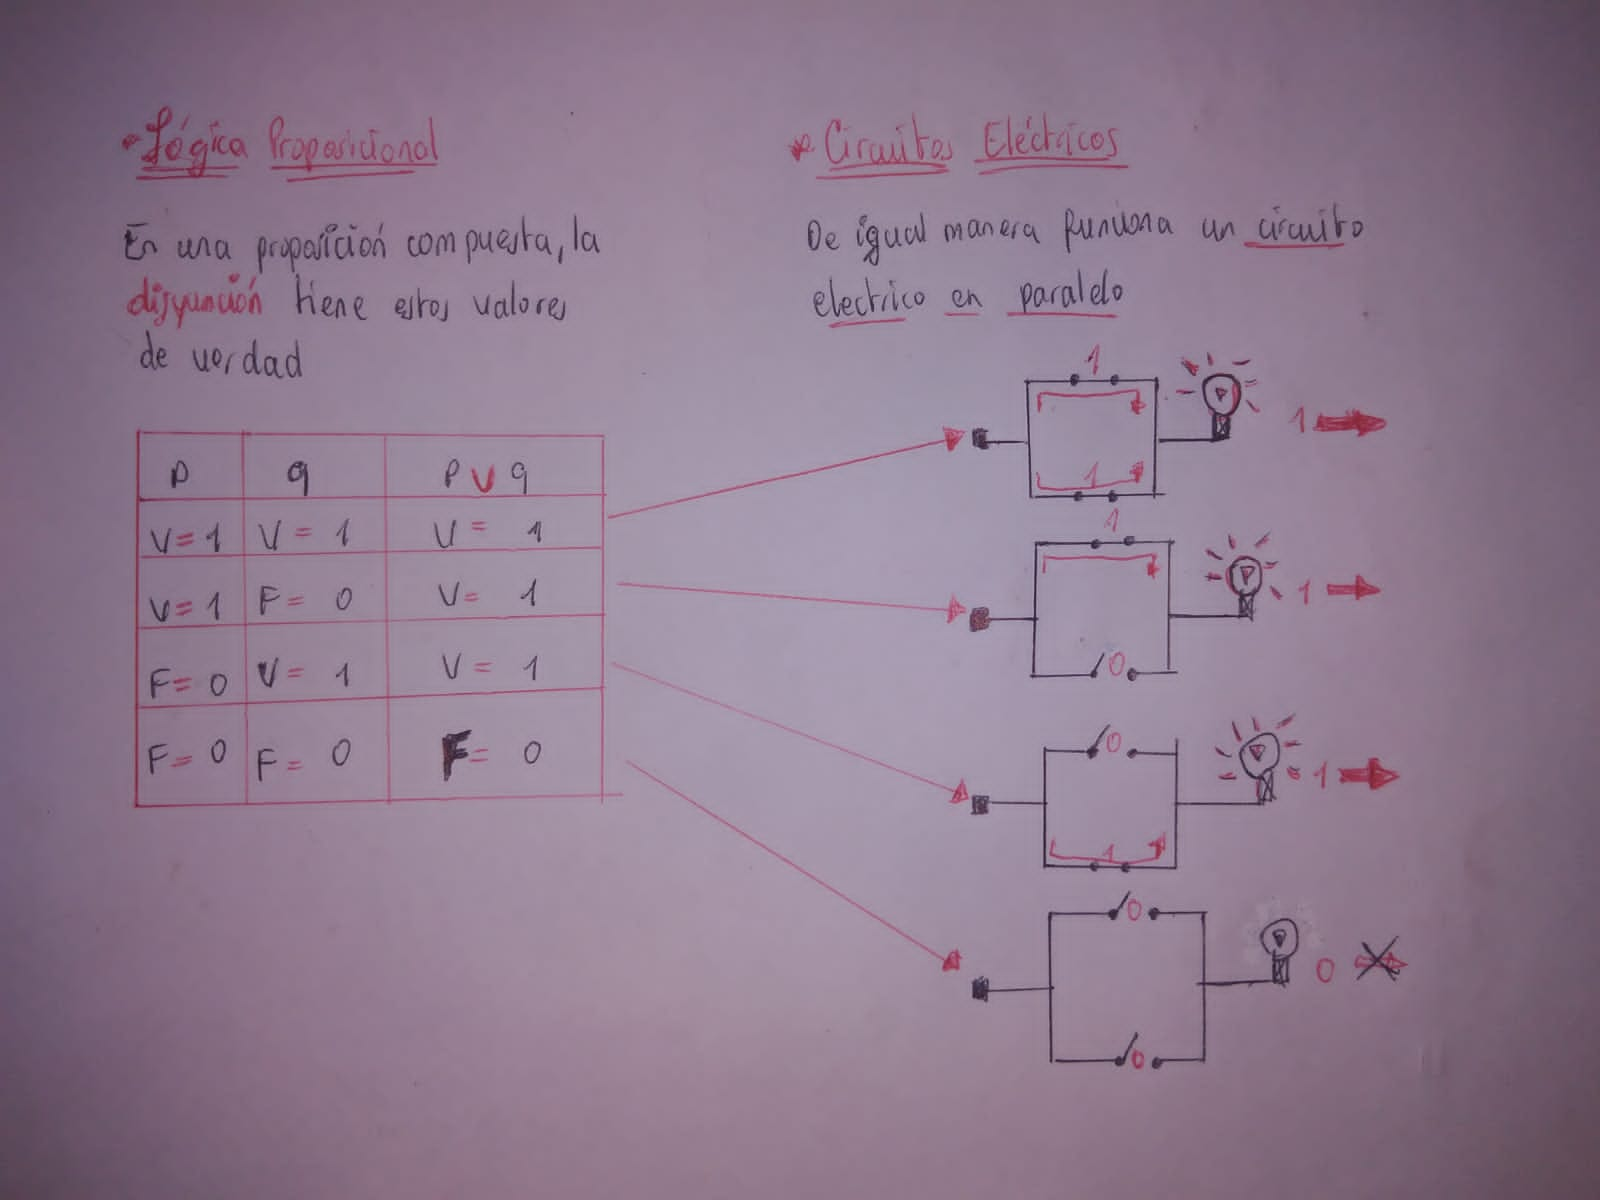 Lógica Proposicional
En una proposición compuesta, la
disyunción tiene estos valores
de verdad
p q p ∨ q
V = 1 V = 1 V = 1
V = 1 F = 0 V = 1
F = 0 V = 1 V = 1
F = 0 F = 0 F = 0
* Circuitos Eléctricos
De igual manera funciona un circuito
electrico en paralelo
1
1
1
1
0
1
0
1
1
0
0
0